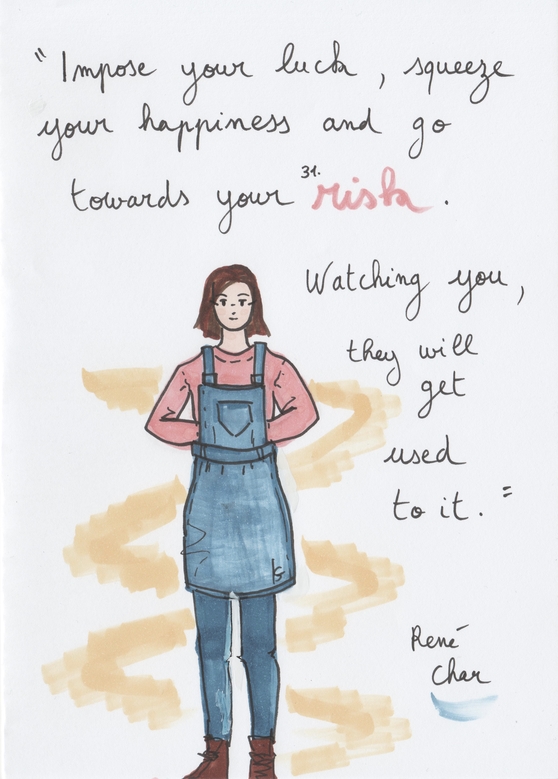 "Impose your luck, squeeze
your happiness and go
towards your risk.
31.
Watching you,
they will
get
used
to it."
René
Char